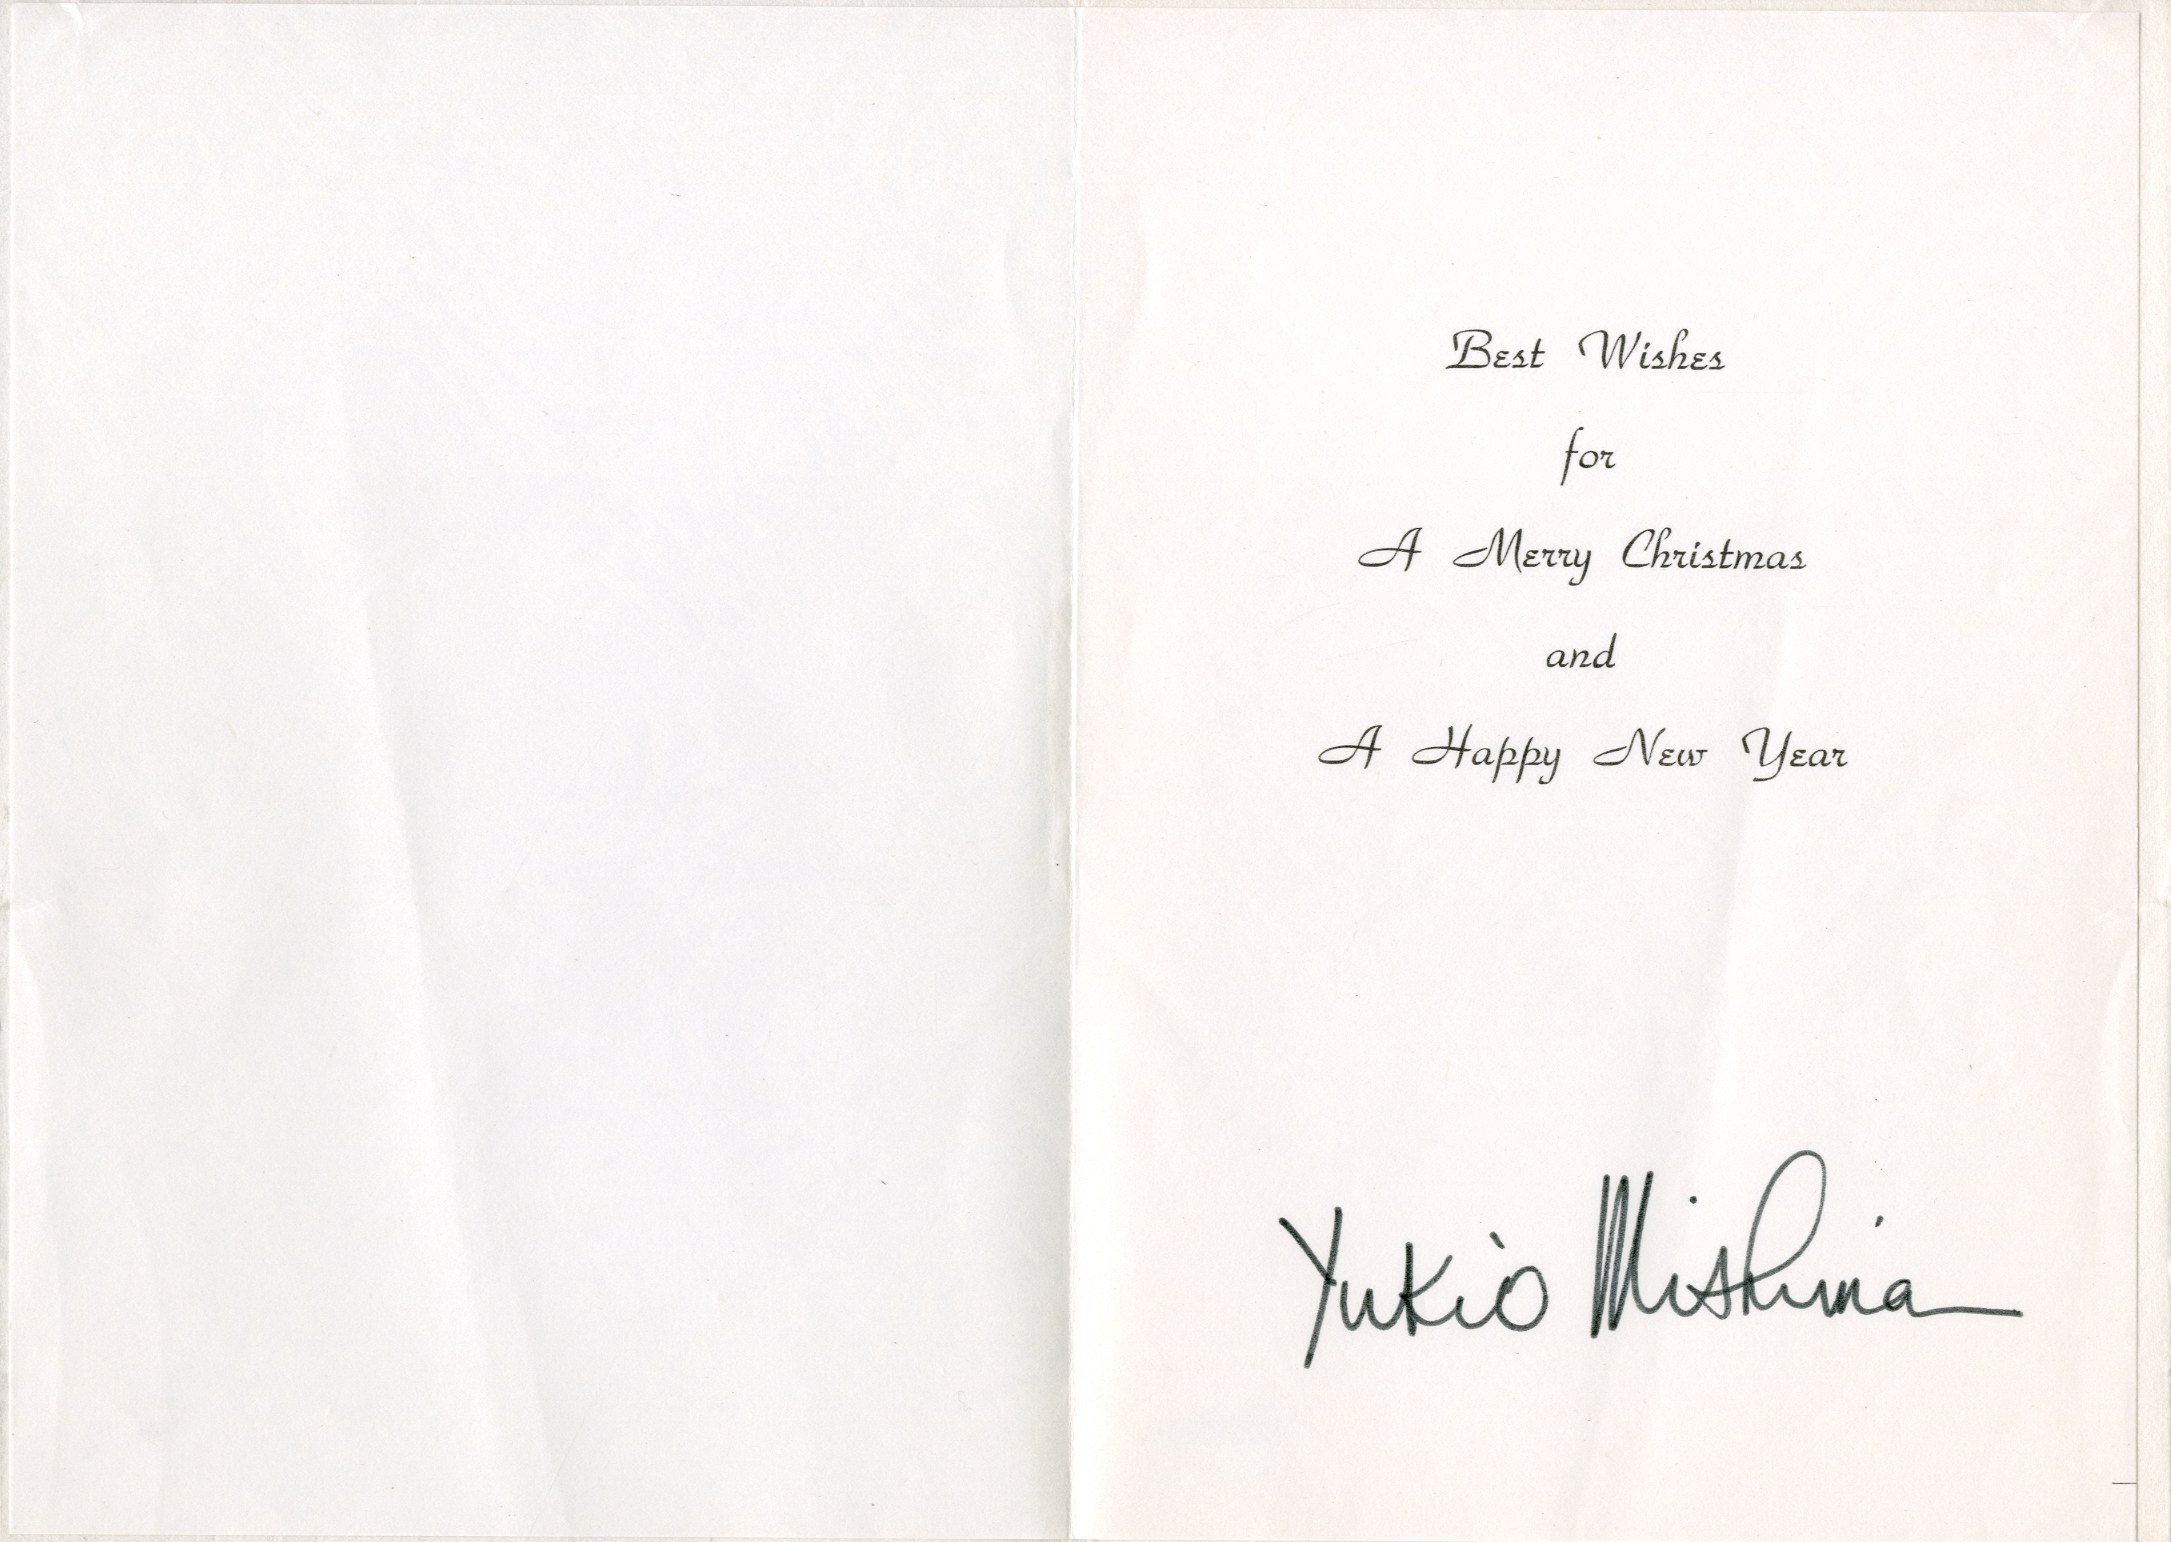 Best Wishes
for
A Merry Christmas
and
A Happy New Year
Yukio Mishima